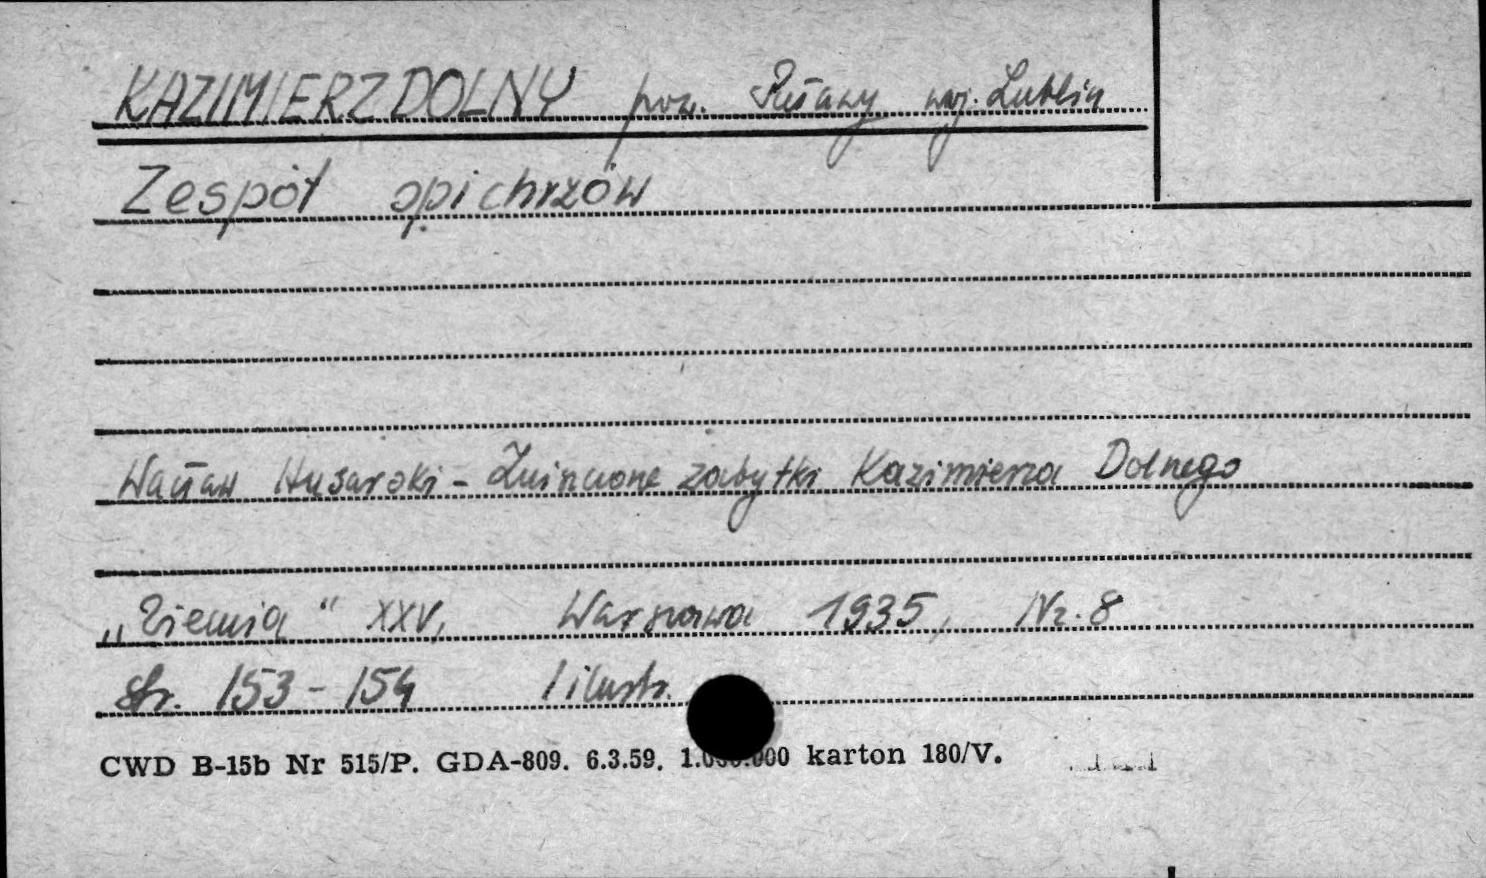 KAZIMIERZ DOLNY pow. Puławy woj. Lublin
Zespół spichrzów
Wacław Husarski - Zniszczone zabytki Kazimierza Dolnego
„Ziemia" XXV, Warszawa 1935, Nr. 8
str. 153 - 154 1 ilustr.
CWD B-15b Nr 515/P. GDA-809. 6.3.59. 1.000.000 karton 180/V.